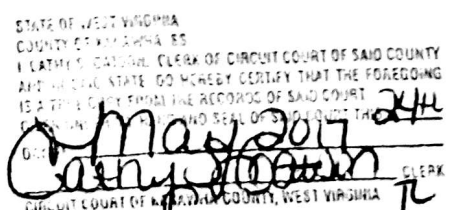 STATE OF WEST VIRGINIA
COUNTY OF KANAWHA, SS
I, CATHY S. GATSON, CLERK OF CIRCUIT COURT OF SAID COUNTY
AND IN SAID STATE, DO HEREBY CERTIFY THAT THE FOREGOING
IS A TRUE COPY FROM THE RECORDS OF SAID COURT
GIVEN UNDER MY HAND AND SEAL OF SAID COURT THIS 24th
DAY OF May 2017
Cathy S. Gatson CLERK
CIRCUIT COURT OF KANAWHA COUNTY, WEST VIRGINIA